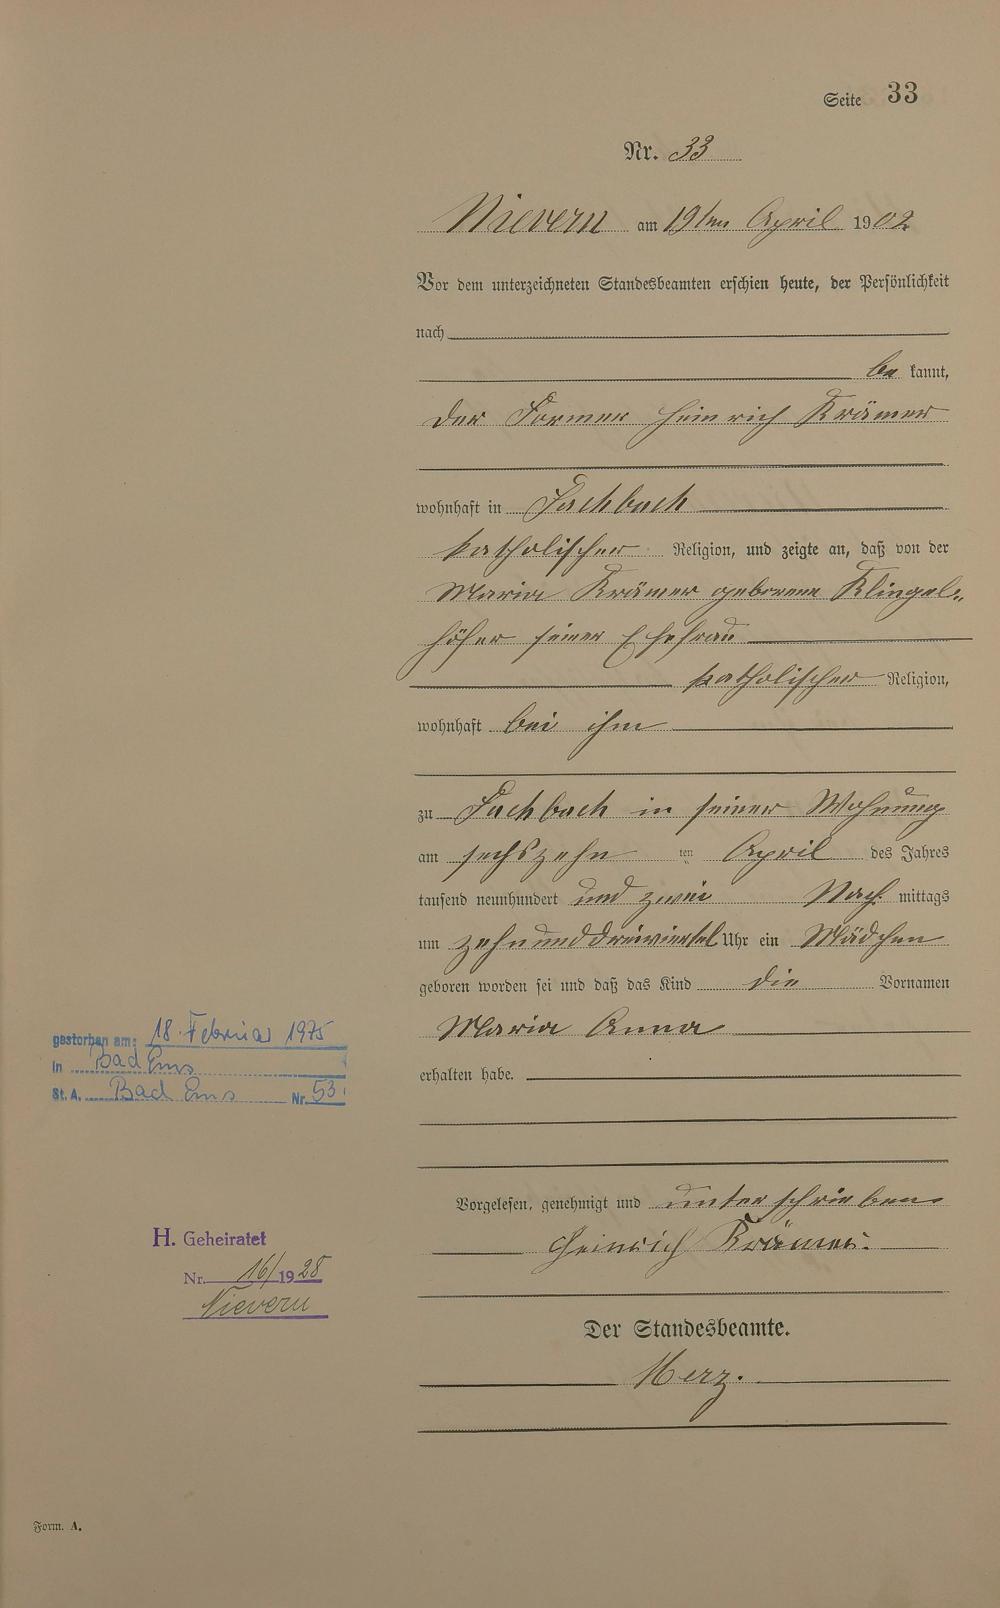 Seite 33
Nr. 33
Nievern am 19ten April 1902
Vor dem unterzeichneten Standesbeamten erschien heute, der Persönlichkeit
nach
be kannt,
der Former Heinrich Krämer
wohnhaft in Fachbach
katholischer Religion, und zeigte an, daß von der
Maria Krämer geborene Klingel„
höfer seiner Ehefrau
katholischer Religion,
wohnhaft bei ihm
zu Fachbach in seiner Wohnung
am sechszehn ten April des Jahres
tausend neunhundert und zwei Nach mittags
um zehnunddreiviertel Uhr ein Mädchen
geboren worden sei und daß das Kind die Vornamen
Maria Anna
erhalten habe.
Vorgelesen, genehmigt und unterschrieben
Heinrich Krämer.
Der Standesbeamte.
Merz.
gestorben am: 18. Februar 1975
in Bad Ems
St. A. Bad Ems Nr. 53
H. Geheiratet
Nr. 16/1928
Nievern
Form. A.